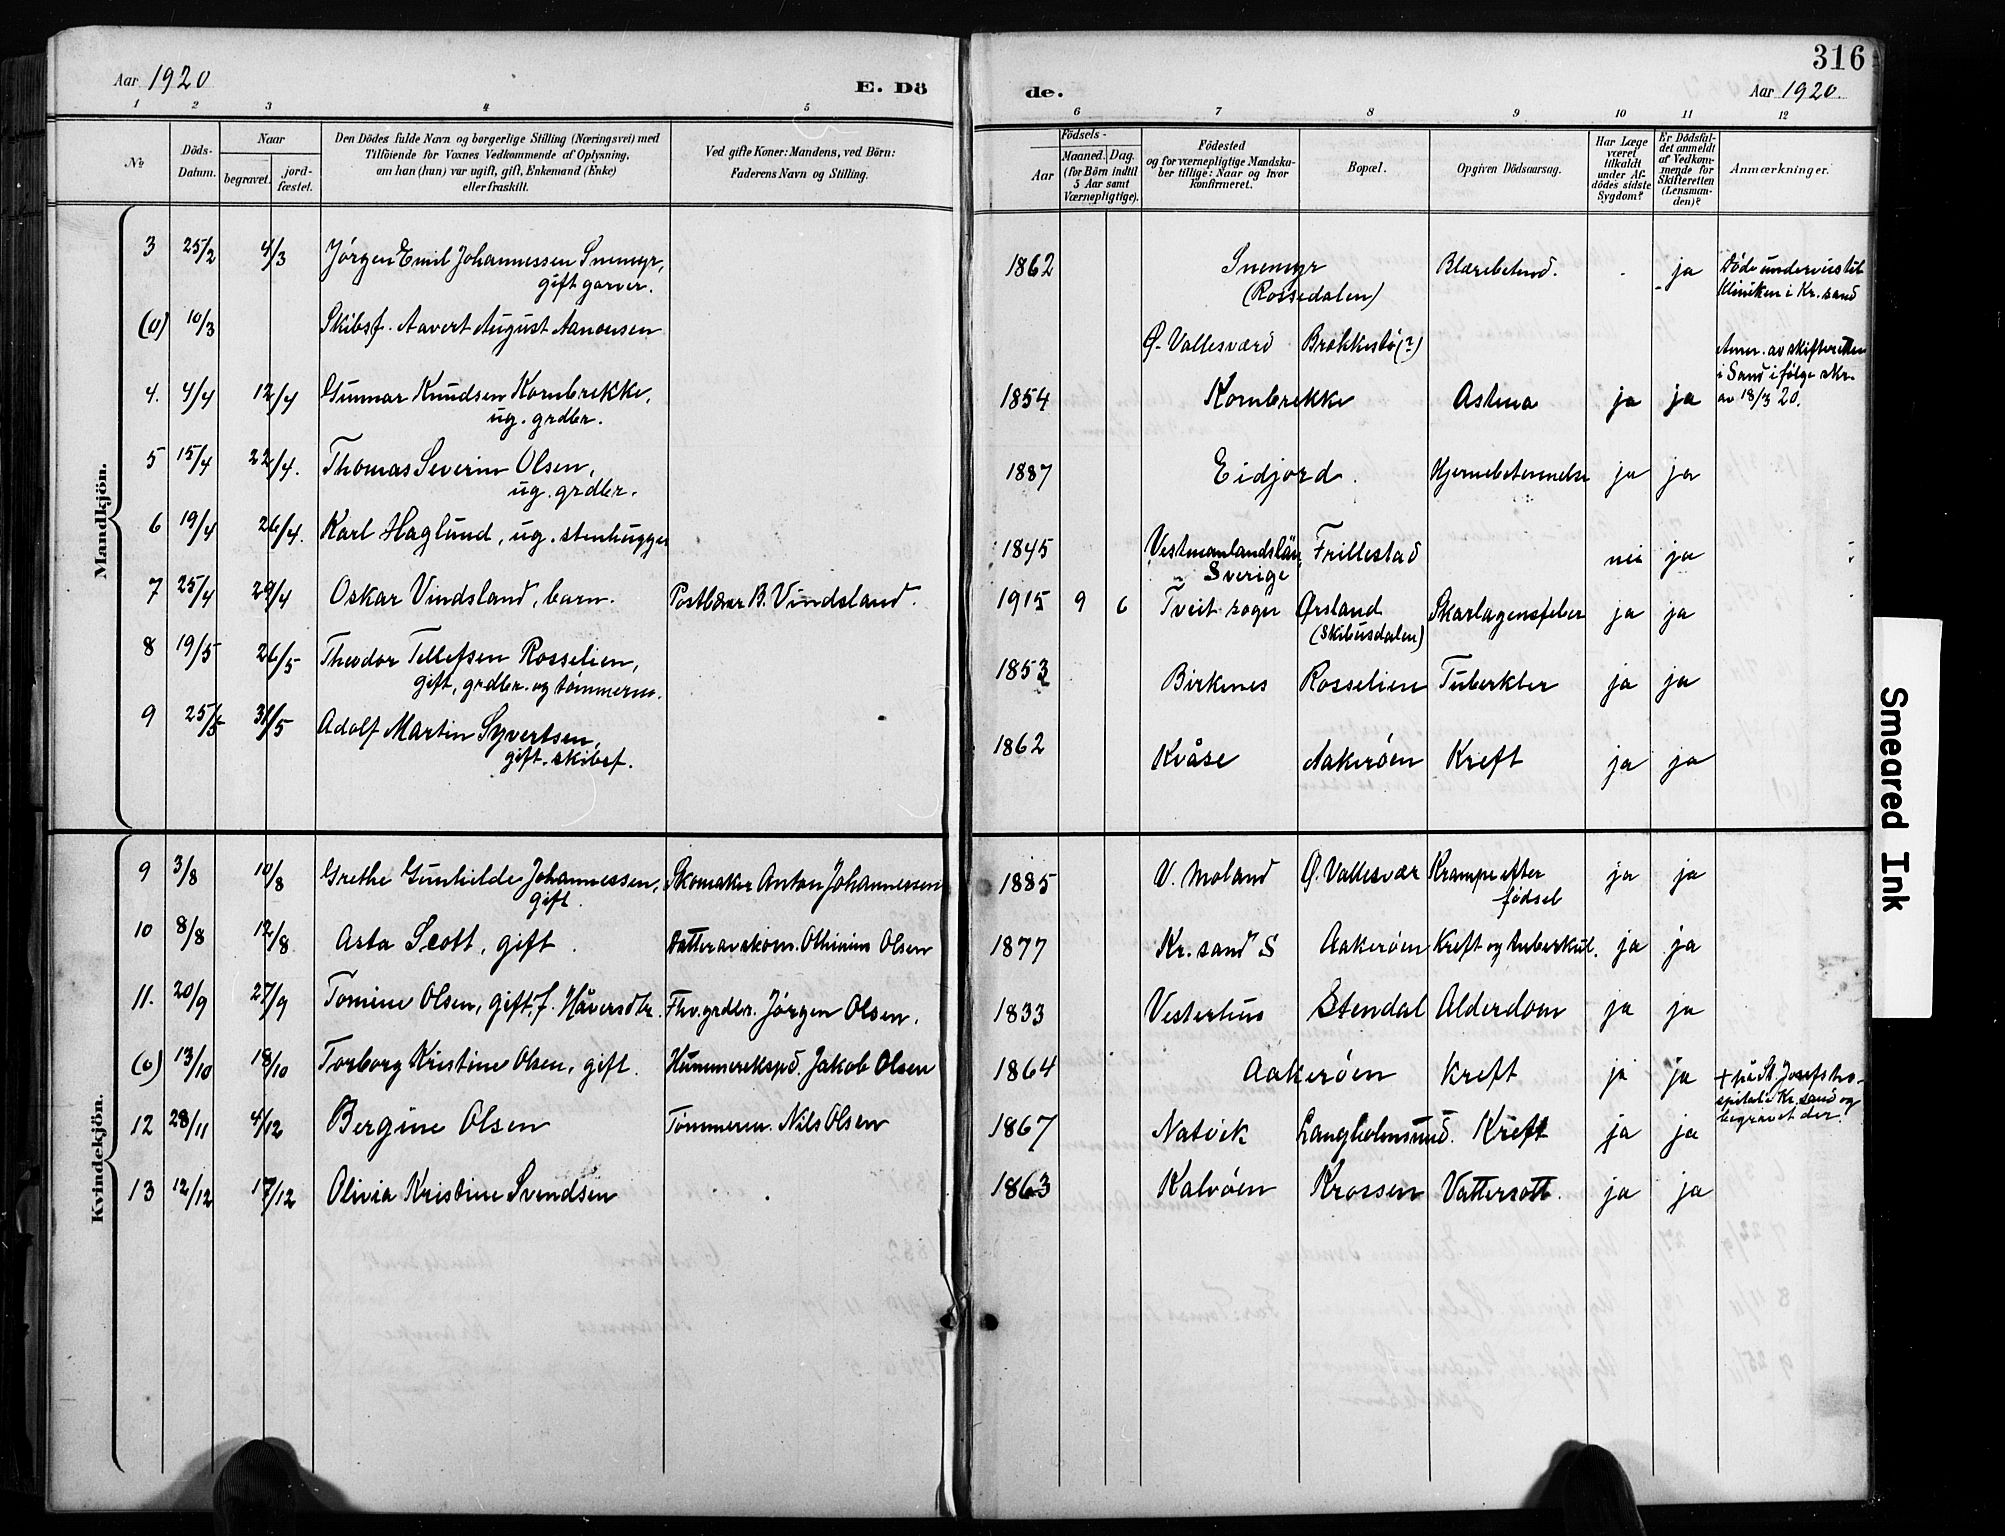 Aar 1920
E. Dö
de.
316
Aar 1920.
1 2 3 4 5 6 7 8 9 10 11 12
No
Döds-
Datum.
Naar
begravet.
jord-
fæstet.
Den Dödes fulde Navn og borgerlige Stilling (Næringsvei) med
Tilföiende for Voxnes Vedkommende af Oplysning,
om han (hun) var ugift, gift, Enkemand (Enke)
eller fraskilt.
Ved gifte Koner: Mandens, ved Börn:
Faderens Navn og Stilling.
Födsels-
Aar
Maaned. Dag.
(for Börn indtil
5 Aar samt
Værnepligtige).
Födested
og for værnepligtige Mandska-
ber tillige: Naar og hvor
konfirmeret.
Bopæl.
Opgiven Dödsaarsag.
Har Læge
været
tilkaldt
under Af-
dödes sidste
Sygdom?
Er Dödsfal-
det anmeldt
af Vedkom-
mende for
Skifteretten
(Lensman-
den)?
Anmærkninger.
Mandkjön.
3 25/2 4/3 Jørgen Emil Johannessen Snemyr, 1862 Snemyr Blærebetend. - ja Døde underveis til
gift garver. (Rossedalen) Kliniken i Kr.sand
(0) 10/3 Skibsf. Aavert August Aanonsen Ø. Vallesværd Brækkestø(?) Anm. av skifteretten
i Sand i følge skr.
av 18/3 20.
4. 4/4 12/4 Gunnar Knudsen Kornbrekke, 1854 Kornbrekke Astma ja ja
ug. grdbr.
5 15/4 22/4. Thomas Severin Olsen, 1887 Eidjord. Hjernebetennelse ja ja
ug. grdbr.
6 19/4 26/4. Karl Haglund, ug. stenhugger 1845 Vestmanlandslän, Frillestad nei ja
Sverige
7 25/4 29/4 Oskar Vindsland, barn. Postbærer B. Vindsland. 1915 9 6 Tveit sogn Ørsland Skarlagensfeber ja ja
(Skibusdalen)
8 19/5 26/5 Theodor Tellefsen Rosselien, 1853 Birkenes Rosselien Tuberkler ja ja
gift, grdbr. og tømmerm.
9 25/5 31/5 Adolf Martin Syvertsen, 1862 Kvåse Aakerøen Kreft ja ja
gift. skibsf.
Kvindekjön.
9 3/8 10/8 Grethe Gunhilde Johannessen, Skomaker Anton Johannessen 1885 V. Moland Ø. Vallesvær Krampe efter ja ja
gift. fødsel
10 8/8 12/8 Asta Scott, gift. Datter av skom. Othinius Olsen 1877 Kr.sand S Aakerøen Kreft og tuberkul. ja ja
11. 20/9 27/9 Tomine Olsen, gift, f. Håversdtr. Fhv. grdbr. Jørgen Olsen. 1833 Vesterhus Stendal Alderdom ja ja
(0) 13/10 18/10 Torborg Kristine Olsen, gift. Hummerekspd. Jakob Olsen 1864 Aakerøen Kreft ja ja + på St. Josefs ho-
spital i Kr.sand og
begravet der.
12 28/11 4/12 Bergine Olsen Tømmerm. Nils Olsen 1867 Natvik Langholmsund. Kreft ja ja
13 12/12 17/12 Olivia Kristine Svendsen 1863 Kalvøen Krossen Vattersott. ja ja
Smeared Ink